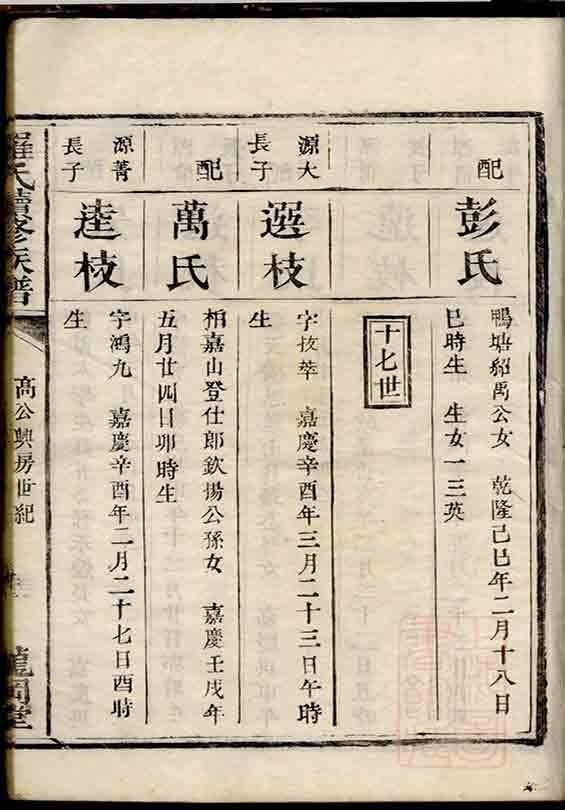 配
彭氏
鴨塘紹禹公女　乾隆己巳年二月十八日
巳時生　生女一三英
十七世
源大
長子
選枝
字拔萃　嘉慶辛酉年三月二十三日午時
生
配
萬氏
相嘉山登仕郎欽揚公孫女　嘉慶壬戌年
五月廿四日卯時生
源菁
長子
達枝
字鴻九　嘉慶辛酉年二月二十七日酉時
生
羅氏續修族譜
高公興房世紀